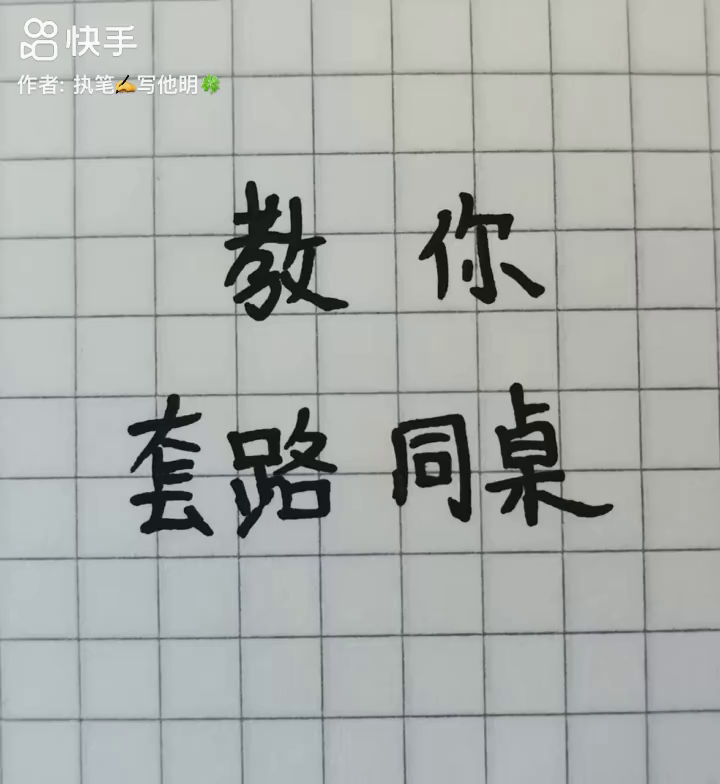 快手
作者: 执笔✍写他明🍀
教 你
套路 同桌